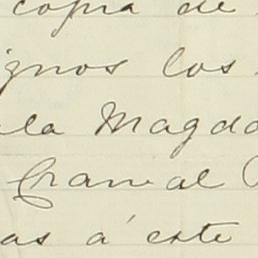 copia de
ignos los
la Magda
as á este